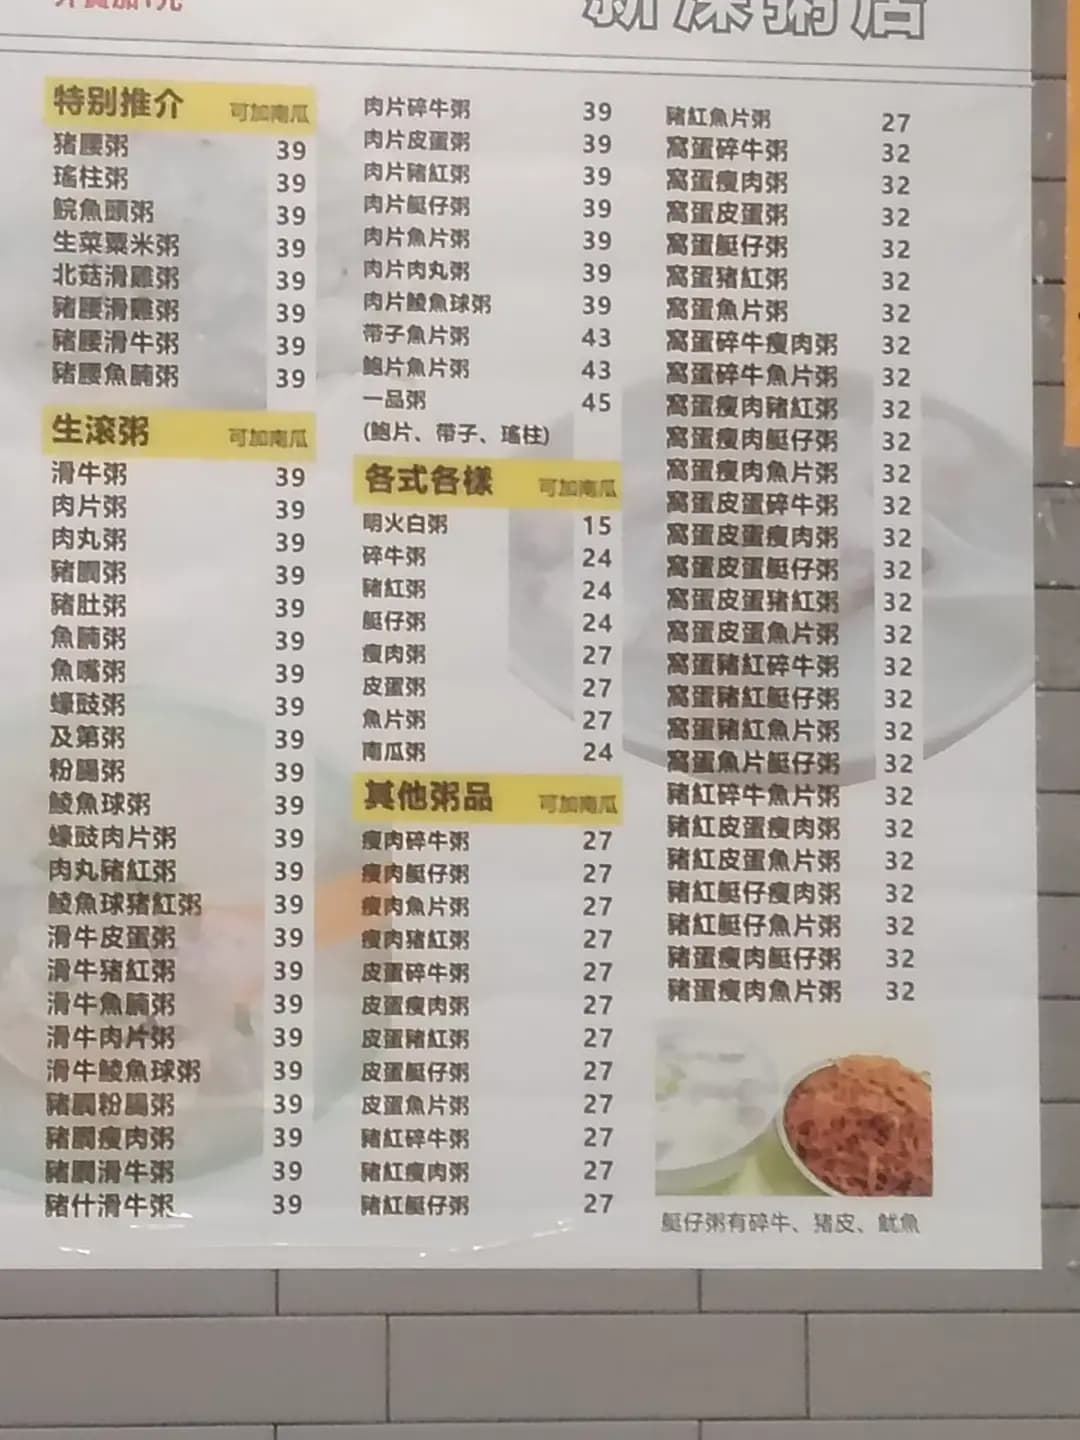 外賣加1元
新深粥店
特别推介 可加南瓜
猪腰粥 39
瑤柱粥 39
鯇魚頭粥 39
生菜粟米粥 39
北菇滑雞粥 39
豬腰滑雞粥 39
豬腰滑牛粥 39
豬腰魚腩粥 39
生滚粥 可加南瓜
滑牛粥 39
肉片粥 39
肉丸粥 39
豬膶粥 39
豬肚粥 39
魚腩粥 39
魚嘴粥 39
蠔豉粥 39
及第粥 39
粉腸粥 39
鯪魚球粥 39
蠔豉肉片粥 39
肉丸豬紅粥 39
鯪魚球猪紅粥 39
滑牛皮蛋粥 39
滑牛猪紅粥 39
滑牛魚腩粥 39
滑牛肉片粥 39
滑牛鯪魚球粥 39
豬膶粉腸粥 39
豬膶瘦肉粥 39
豬膶滑牛粥 39
豬什滑牛粥 39
肉片碎牛粥 39
肉片皮蛋粥 39
肉片豬紅粥 39
肉片艇仔粥 39
肉片魚片粥 39
肉片肉丸粥 39
肉片鯪魚球粥 39
带子魚片粥 43
鮑片魚片粥 43
一品粥 45
(鮑片、帶子、瑤柱)
各式各樣 可加南瓜
明火白粥 15
碎牛粥 24
豬紅粥 24
艇仔粥 24
瘦肉粥 27
皮蛋粥 27
魚片粥 27
南瓜粥 24
其他粥品 可加南瓜
瘦肉碎牛粥 27
瘦肉艇仔粥 27
瘦肉魚片粥 27
瘦肉豬紅粥 27
皮蛋碎牛粥 27
皮蛋瘦肉粥 27
皮蛋豬紅粥 27
皮蛋艇仔粥 27
皮蛋魚片粥 27
豬紅碎牛粥 27
豬紅瘦肉粥 27
豬紅艇仔粥 27
豬紅魚片粥 27
窩蛋碎牛粥 32
窩蛋瘦肉粥 32
窩蛋皮蛋粥 32
窩蛋艇仔粥 32
窩蛋猪紅粥 32
窩蛋魚片粥 32
窩蛋碎牛瘦肉粥 32
窩蛋碎牛魚片粥 32
窩蛋瘦肉豬紅粥 32
窩蛋瘦肉艇仔粥 32
窩蛋瘦肉魚片粥 32
窩蛋皮蛋碎牛粥 32
窩蛋皮蛋瘦肉粥 32
窩蛋皮蛋艇仔粥 32
窩蛋皮蛋猪紅粥 32
窩蛋皮蛋魚片粥 32
窩蛋豬紅碎牛粥 32
窩蛋豬紅艇仔粥 32
窩蛋豬紅魚片粥 32
窩蛋魚片艇仔粥 32
豬紅碎牛魚片粥 32
豬紅皮蛋瘦肉粥 32
豬紅皮蛋魚片粥 32
豬紅艇仔瘦肉粥 32
豬紅艇仔魚片粥 32
豬蛋瘦肉艇仔粥 32
豬蛋瘦肉魚片粥 32
艇仔粥有碎牛、猪皮、魷魚